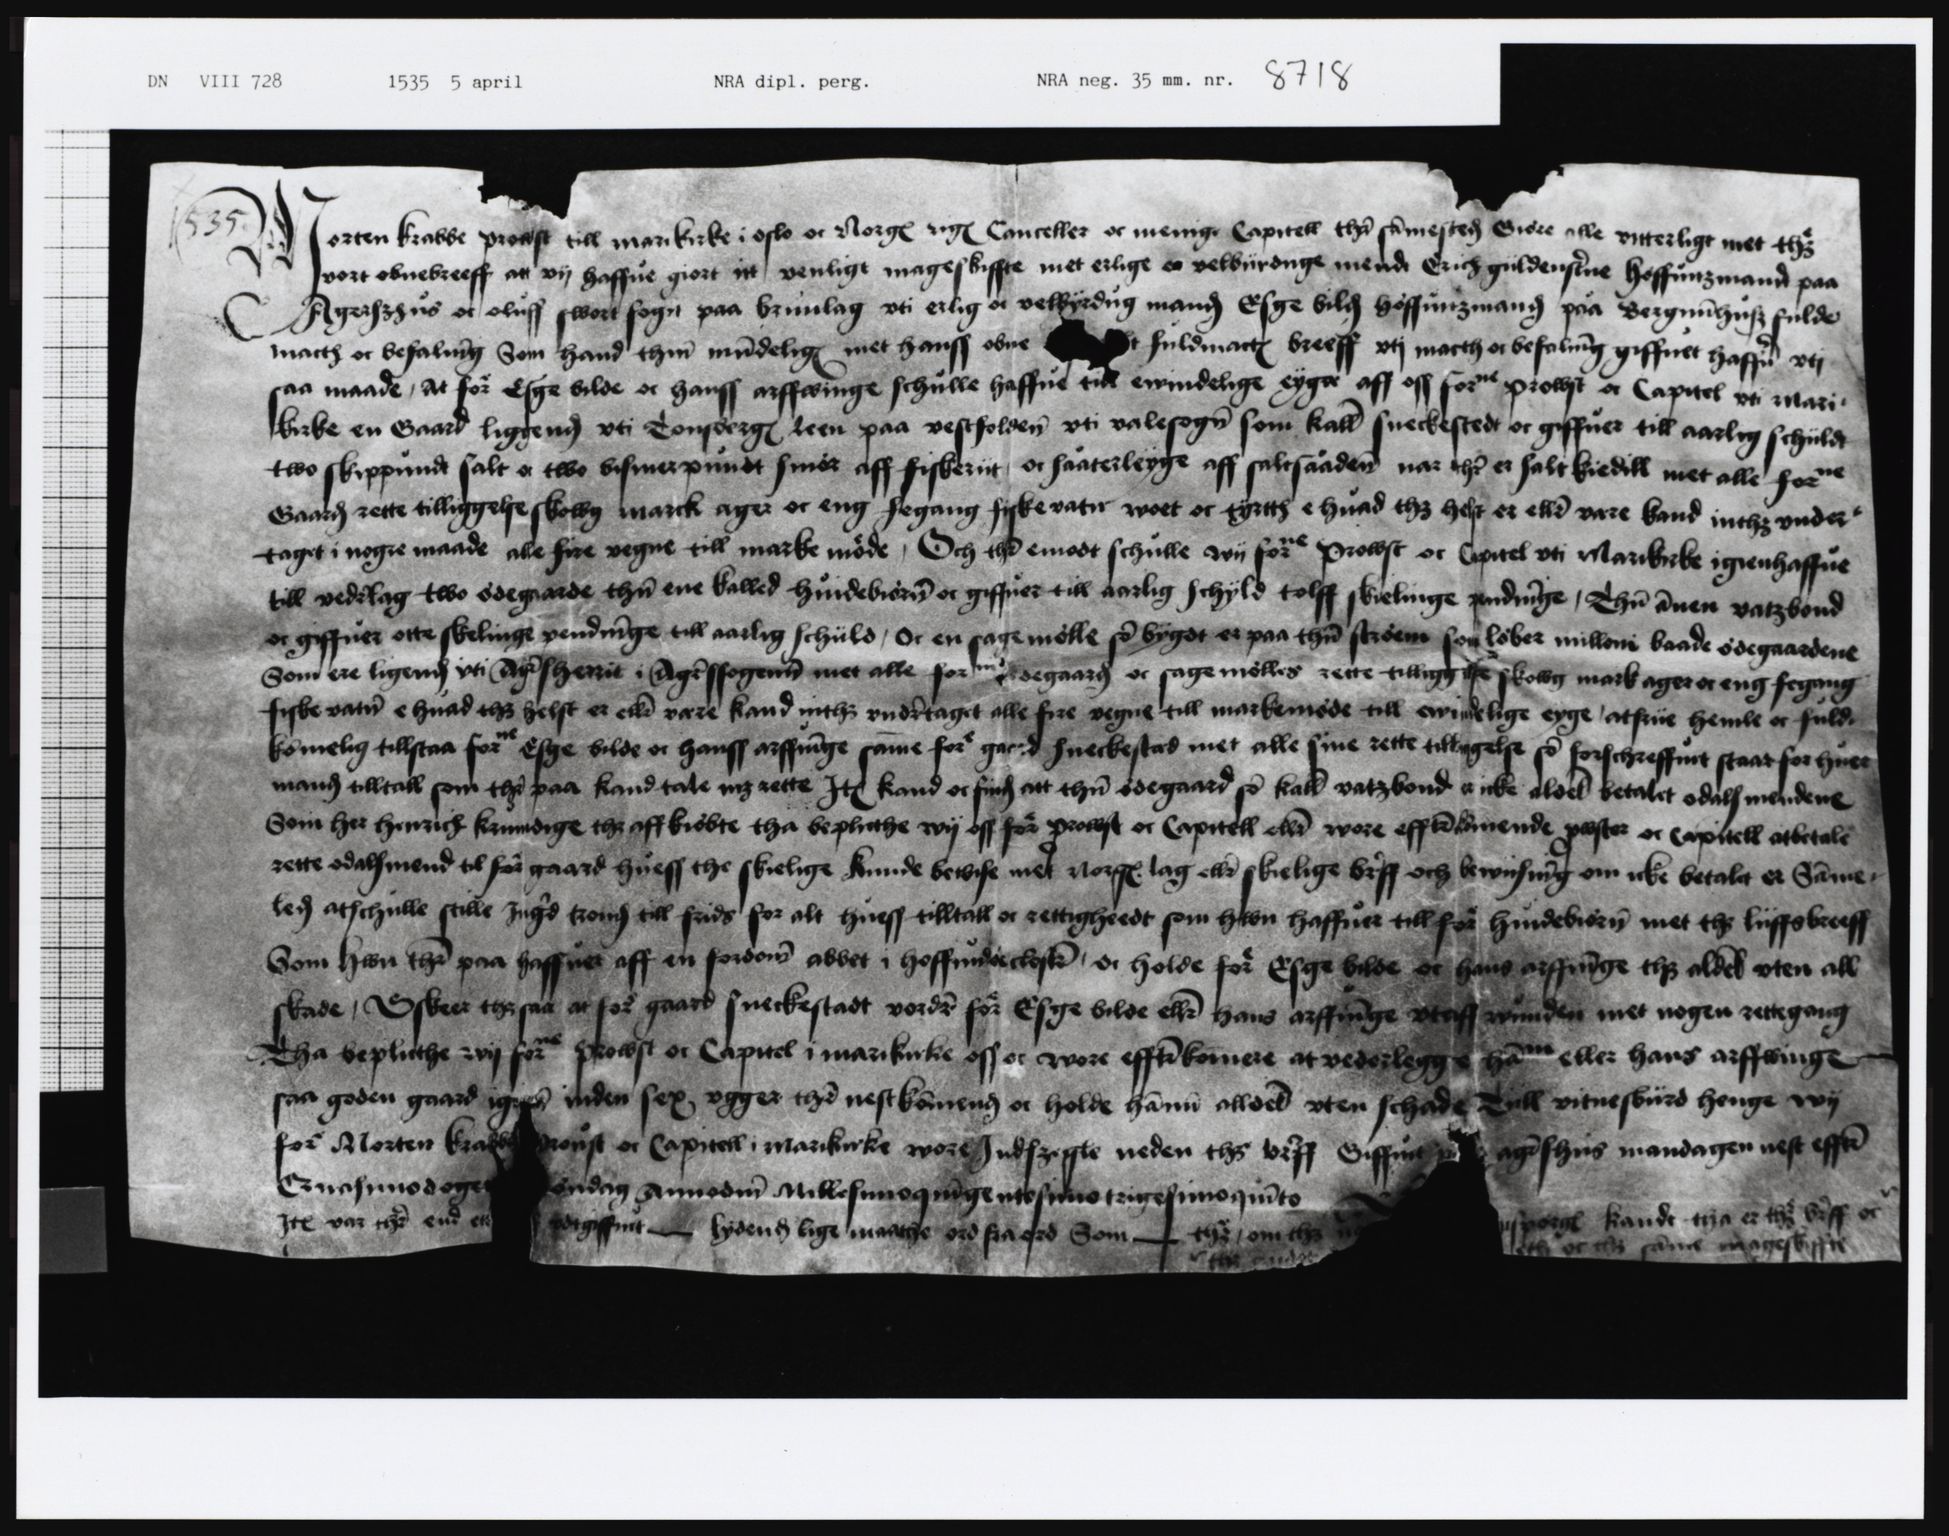 DN VIII 728 1535 5 april NRA dipl. perg. NRA neg. 35 mm. nr. 8718
(1535)
Morten krabbe prowst till marikirke i oslo oc Norgꝭ rigꝭ Canceller oc menige Capitell thr̄ sāmestedꝭ Giøre alle vitterligt met thꝫ
vort obnebreeff att vij haffue giort itt venligt mageskiffte met erlige oc velbürdnge mendt Erich güldenstrne høffuitzmand paa
Agerszhus oc oluff swort sogn paa brunlag vti erlig oc velbyrdug mandꝭ Esge bildꝭ høffuitzmandꝭ paa Bergenhusz fulde
macth oc befalnīg Som hand thm̄ mūdeligꝭ met hanss obne fuldmactꝭ breeff vti macth oc befalnīg giffuet haffur vti
saa maade, At for Esge bilde oc hanss arffwinge schulle haffue till ewindelige eyge aff oss forne prowst oc Capitel vti Mari
kirke en Gaard liggendꝭ vti Tonsbergꝭ leen paa vestfolden vti valesogn som kall sneckestedt oc giffuer till aarlig schüldt
two skippundt salt oc two bismerpundt smør aff fiskeriit oc saaterleyge aff saltsaaden nar thr̄ er salt kiedill met alle forne
Gaardꝭ rette tilliggelse skowg marck ager oc eng fegang fiskevatn woet oc tyrtth e huad thꝫ helst er ellr̄ vare kand inthꝫ vnder
taget i nogre maade alle fire vegne till marke møde, Och thr̄ emodt schulle wij forne Prowst oc Capitel vti Marikirke igienhaffue
till vedrlag two ødegaarde thn̄ ene kalled huidebiørn oc giffuer till aarlig schyld tolff skielinge pendnīge, Thn̄ ānen vatzbond
oc giffuer otte skelinge pendnīge till aarlig schüld, Oc en sagemølle sō bygdt er paa thn̄ strøem som løber millom baade ødegaardene
Som ere ligendꝭ vti Agrsherrit i Agrssogenn met alle forne ødegaardꝭ oc sagemølles rette tilliggelse skowg mark ager oc eng fegang
fiskevatn e huad thꝫ helst er ellr̄ vare kand inthꝫ vndrtaget alle fire vegne till markemøde till ewindelige eyge, atfrije hemle oc fuld
komelig tillstaa forne Esge bilde oc hanss arffunge sāme for gaard sneckestad met alle sine rette tilligelse sō forschreffuit staar for huer
mandꝭ tilltall som thr̄ paa kand tale mꝫ rette Itꝭ kand oc findꝭ att thn̄ ødegaard sō kall vatzbond er icke aldel betalet odalsmendene
Som her henrich krumdige thꝫ aff kiøbte tha beplicthe wij oss for prowst oc Capitell ellr̄ wore efftrkōmende prowster oc Capitell atbetale
rette odalsmend til for gaard huess the skielige kunde bewise met Norgꝭ lag ellr̄ skielige brff och bewiisnīg om icke betalet er Sāme
ledꝭ atschulle stille Ingrd trondꝭ till fridꝭ for alt huess tilltall oc rettigheedt som hwn haffuer till for huidebiørn met thꝫ liiffsbreeff
Som hwn thr̄ paa haffuer aff en fordom abbet i hoffuidøe closter, oc holde for Esge bilde oc hans arffnīge thꝫ aldel vten all
skade, Skeer thꝫ saa at for gaard sneckestadt vordr for Esge bilde ellr̄ hans arffuīge vtaff wunden met nogen rettegang
Tha beplicthe wij forne Prowst oc Capitel i marikirke oss oc wore efftrkomere at vederlegge hānm eller hans arffwinge
saa goden gaard igien inden sex vgger thr̄ nestkōmendꝭ oc holde hānm alldel vten schade Till vitnesbürd henge wij
for Morten krabbe Prowst oc Capitell i marikirke wore Indszegle neden thꝫ brff Giffuit agrshus mandagen nest efftr
søndag Annodn̄i Millesimoquīgentesimotrigesimoquīto
Itꝭ var thr̄ vdtgiffuit lydendꝭ lige maathe ord fra ord Som thr̄, om thꝫ kandt tha er thꝫ brff oc
oc thꝫ sāme mageskiffte